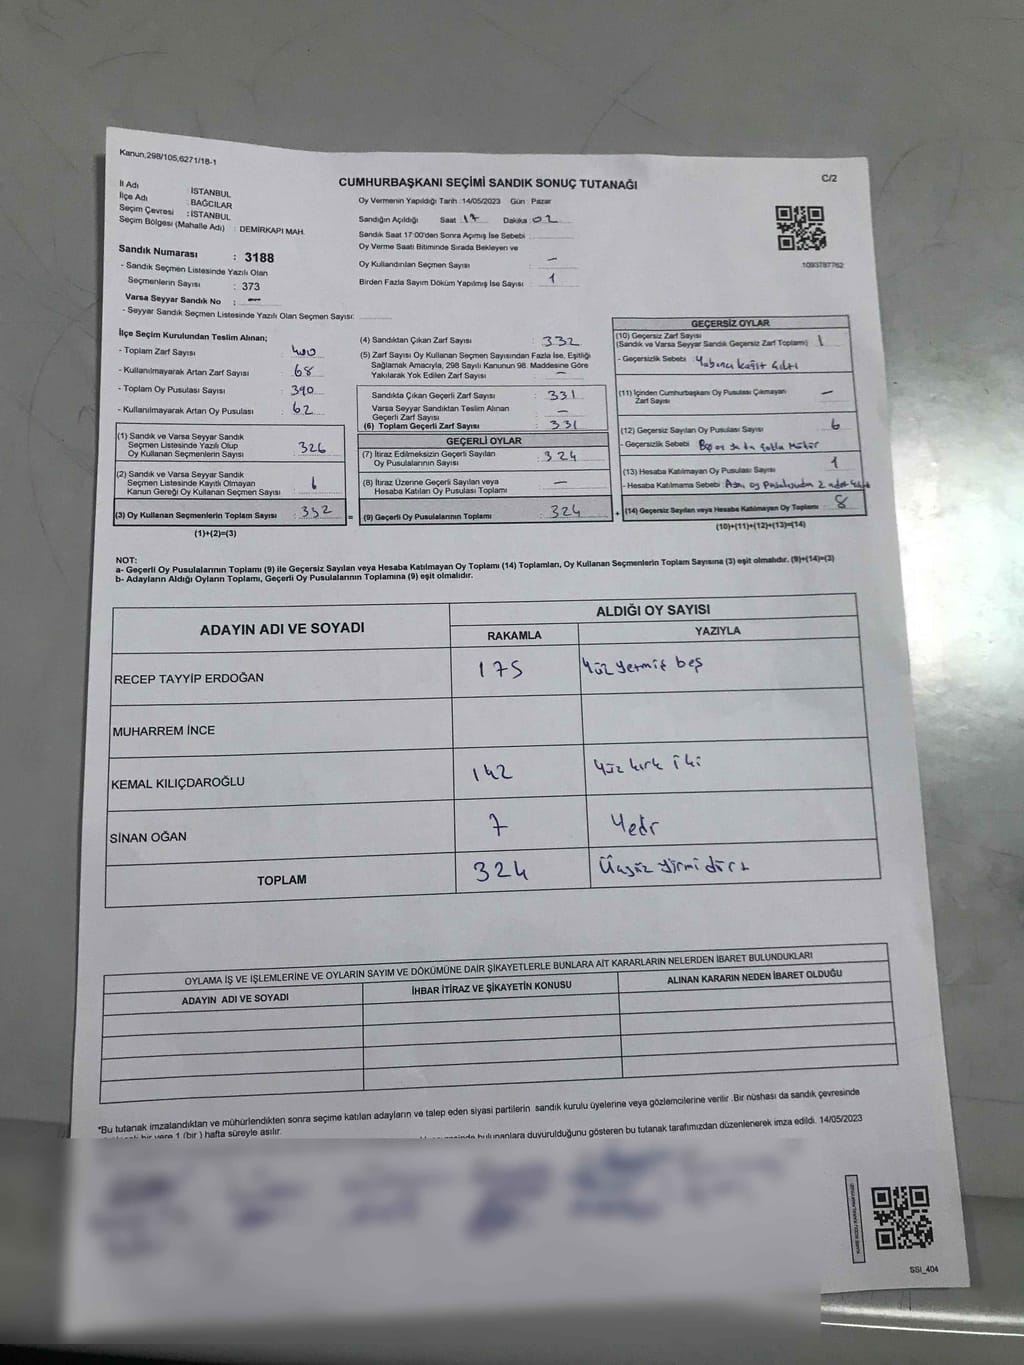 Kanun,298/105,6271/18-1
C/2
CUMHURBAŞKANI SEÇİMİ SANDIK SONUÇ TUTANAĞI
İl Adı : İSTANBUL
İlçe Adı : BAĞCILAR
Seçim Çevresi : İSTANBUL
Seçim Bölgesi (Mahalle Adı) : DEMİRKAPI MAH.
Sandık Numarası : 3188
- Sandık Seçmen Listesinde Yazılı Olan
Seçmenlerin Sayısı : 373
Varsa Seyyar Sandık No : —
- Seyyar Sandık Seçmen Listesinde Yazılı Olan Seçmen Sayısı:
Oy Vermenin Yapıldığı Tarih : 14/05/2023 Gün : Pazar
Sandığın Açıldığı Saat : 17 Dakika : 02
Sandık Saat 17:00'den Sonra Açımış İse Sebebi :
Oy Verme Saati Bitiminde Sırada Bekleyen ve
Oy Kullandırılan Seçmen Sayısı : —
Birden Fazla Sayım Döküm Yapılmış İse Sayısı : 1
1093787762
İlçe Seçim Kurulundan Teslim Alınan;
- Toplam Zarf Sayısı : 400
- Kullanılmayarak Artan Zarf Sayısı : 68
- Toplam Oy Pusulası Sayısı : 390
- Kullanılmayarak Artan Oy Pusulası : 62
(1) Sandık ve Varsa Seyyar Sandık
Seçmen Listesinde Yazılı Olup
Oy Kullanan Seçmenlerin Sayısı : 326
(2) Sandık ve Varsa Seyyar Sandık
Seçmen Listesinde Kayıtlı Olmayan
Kanun Gereği Oy Kullanan Seçmen Sayısı : 6
(3) Oy Kullanan Seçmenlerin Toplam Sayısı : 332 =
(1)+(2)=(3)
(4) Sandıktan Çıkan Zarf Sayısı : 332
(5) Zarf Sayısı Oy Kullanan Seçmen Sayısından Fazla İse, Eşitliği
Sağlamak Amacıyla, 298 Sayılı Kanunun 98. Maddesine Göre
Yakılarak Yok Edilen Zarf Sayısı : —
Sandıkta Çıkan Geçerli Zarf Sayısı : 331
Varsa Seyyar Sandıktan Teslim Alınan
Geçerli Zarf Sayısı : —
(6) Toplam Geçerli Zarf Sayısı : 331
GEÇERLİ OYLAR
(7) İtiraz Edilmeksizin Geçerli Sayılan
Oy Pusulalarının Sayısı : 324
(8) İtiraz Üzerine Geçerli Sayılan veya
Hesaba Katılan Oy Pusulası Toplamı : —
(9) Geçerli Oy Pusulalarının Toplamı : 324 +
GEÇERSİZ OYLAR
(10) Geçersiz Zarf Sayısı
(Sandık ve Varsa Seyyar Sandık Geçersiz Zarf Toplamı) : 1
- Geçersizlik Sebebi : Yabancı kağıt çıktı
(11) İçinden Cumhurbaşkanı Oy Pusulası Çıkmayan
Zarf Sayısı : —
(12) Geçersiz Sayılan Oy Pusulası Sayısı : 6
- Geçersizlik Sebebi : Boş ya da fazla mühür
(13) Hesaba Katılmayan Oy Pusulası Sayısı : 1
- Hesaba Katılmama Sebebi : Aynı oy pusulasından 2 adet çıktı
(14) Geçersiz Sayılan veya Hesaba Katılmayan Oy Toplamı : 8
(10)+(11)+(12)+(13)=(14)
NOT:
a- Geçerli Oy Pusulalarının Toplamı (9) ile Geçersiz Sayılan veya Hesaba Katılmayan Oy Toplamı (14) Toplamları, Oy Kullanan Seçmenlerin Toplam Sayısına (3) eşit olmalıdır. (9)+(14)=(3)
b- Adayların Aldığı Oyların Toplamı, Geçerli Oy Pusulalarının Toplamına (9) eşit olmalıdır.
ADAYIN ADI VE SOYADI
ALDIĞI OY SAYISI
RAKAMLA YAZIYLA
RECEP TAYYİP ERDOĞAN 175 Yüz yetmiş beş
MUHARREM İNCE
KEMAL KILIÇDAROĞLU 142 Yüz kırk iki
SİNAN OĞAN 7 Yedi
TOPLAM 324 Üçyüz yirmi dört
OYLAMA İŞ VE İŞLEMLERİNE VE OYLARIN SAYIM VE DÖKÜMÜNE DAİR ŞİKAYETLERLE BUNLARA AİT KARARLARIN NELERDEN İBARET BULUNDUKLARI
ADAYIN ADI VE SOYADI İHBAR İTİRAZ VE ŞİKAYETİN KONUSU ALINAN KARARIN NEDEN İBARET OLDUĞU
*Bu tutanak imzalandıktan ve mühürlendikten sonra seçime katılan adayların ve talep eden siyasi partilerin sandık kurulu üyelerine veya gözlemcilerine verilir .Bir nüshası da sandık çevresinde
bir yere 1 (bir ) hafta süreyle asılır.
bulunanlara duyurulduğunu gösteren bu tutanak tarafımızdan düzenlenerek imza edildi. 14/05/2023
SSI_404